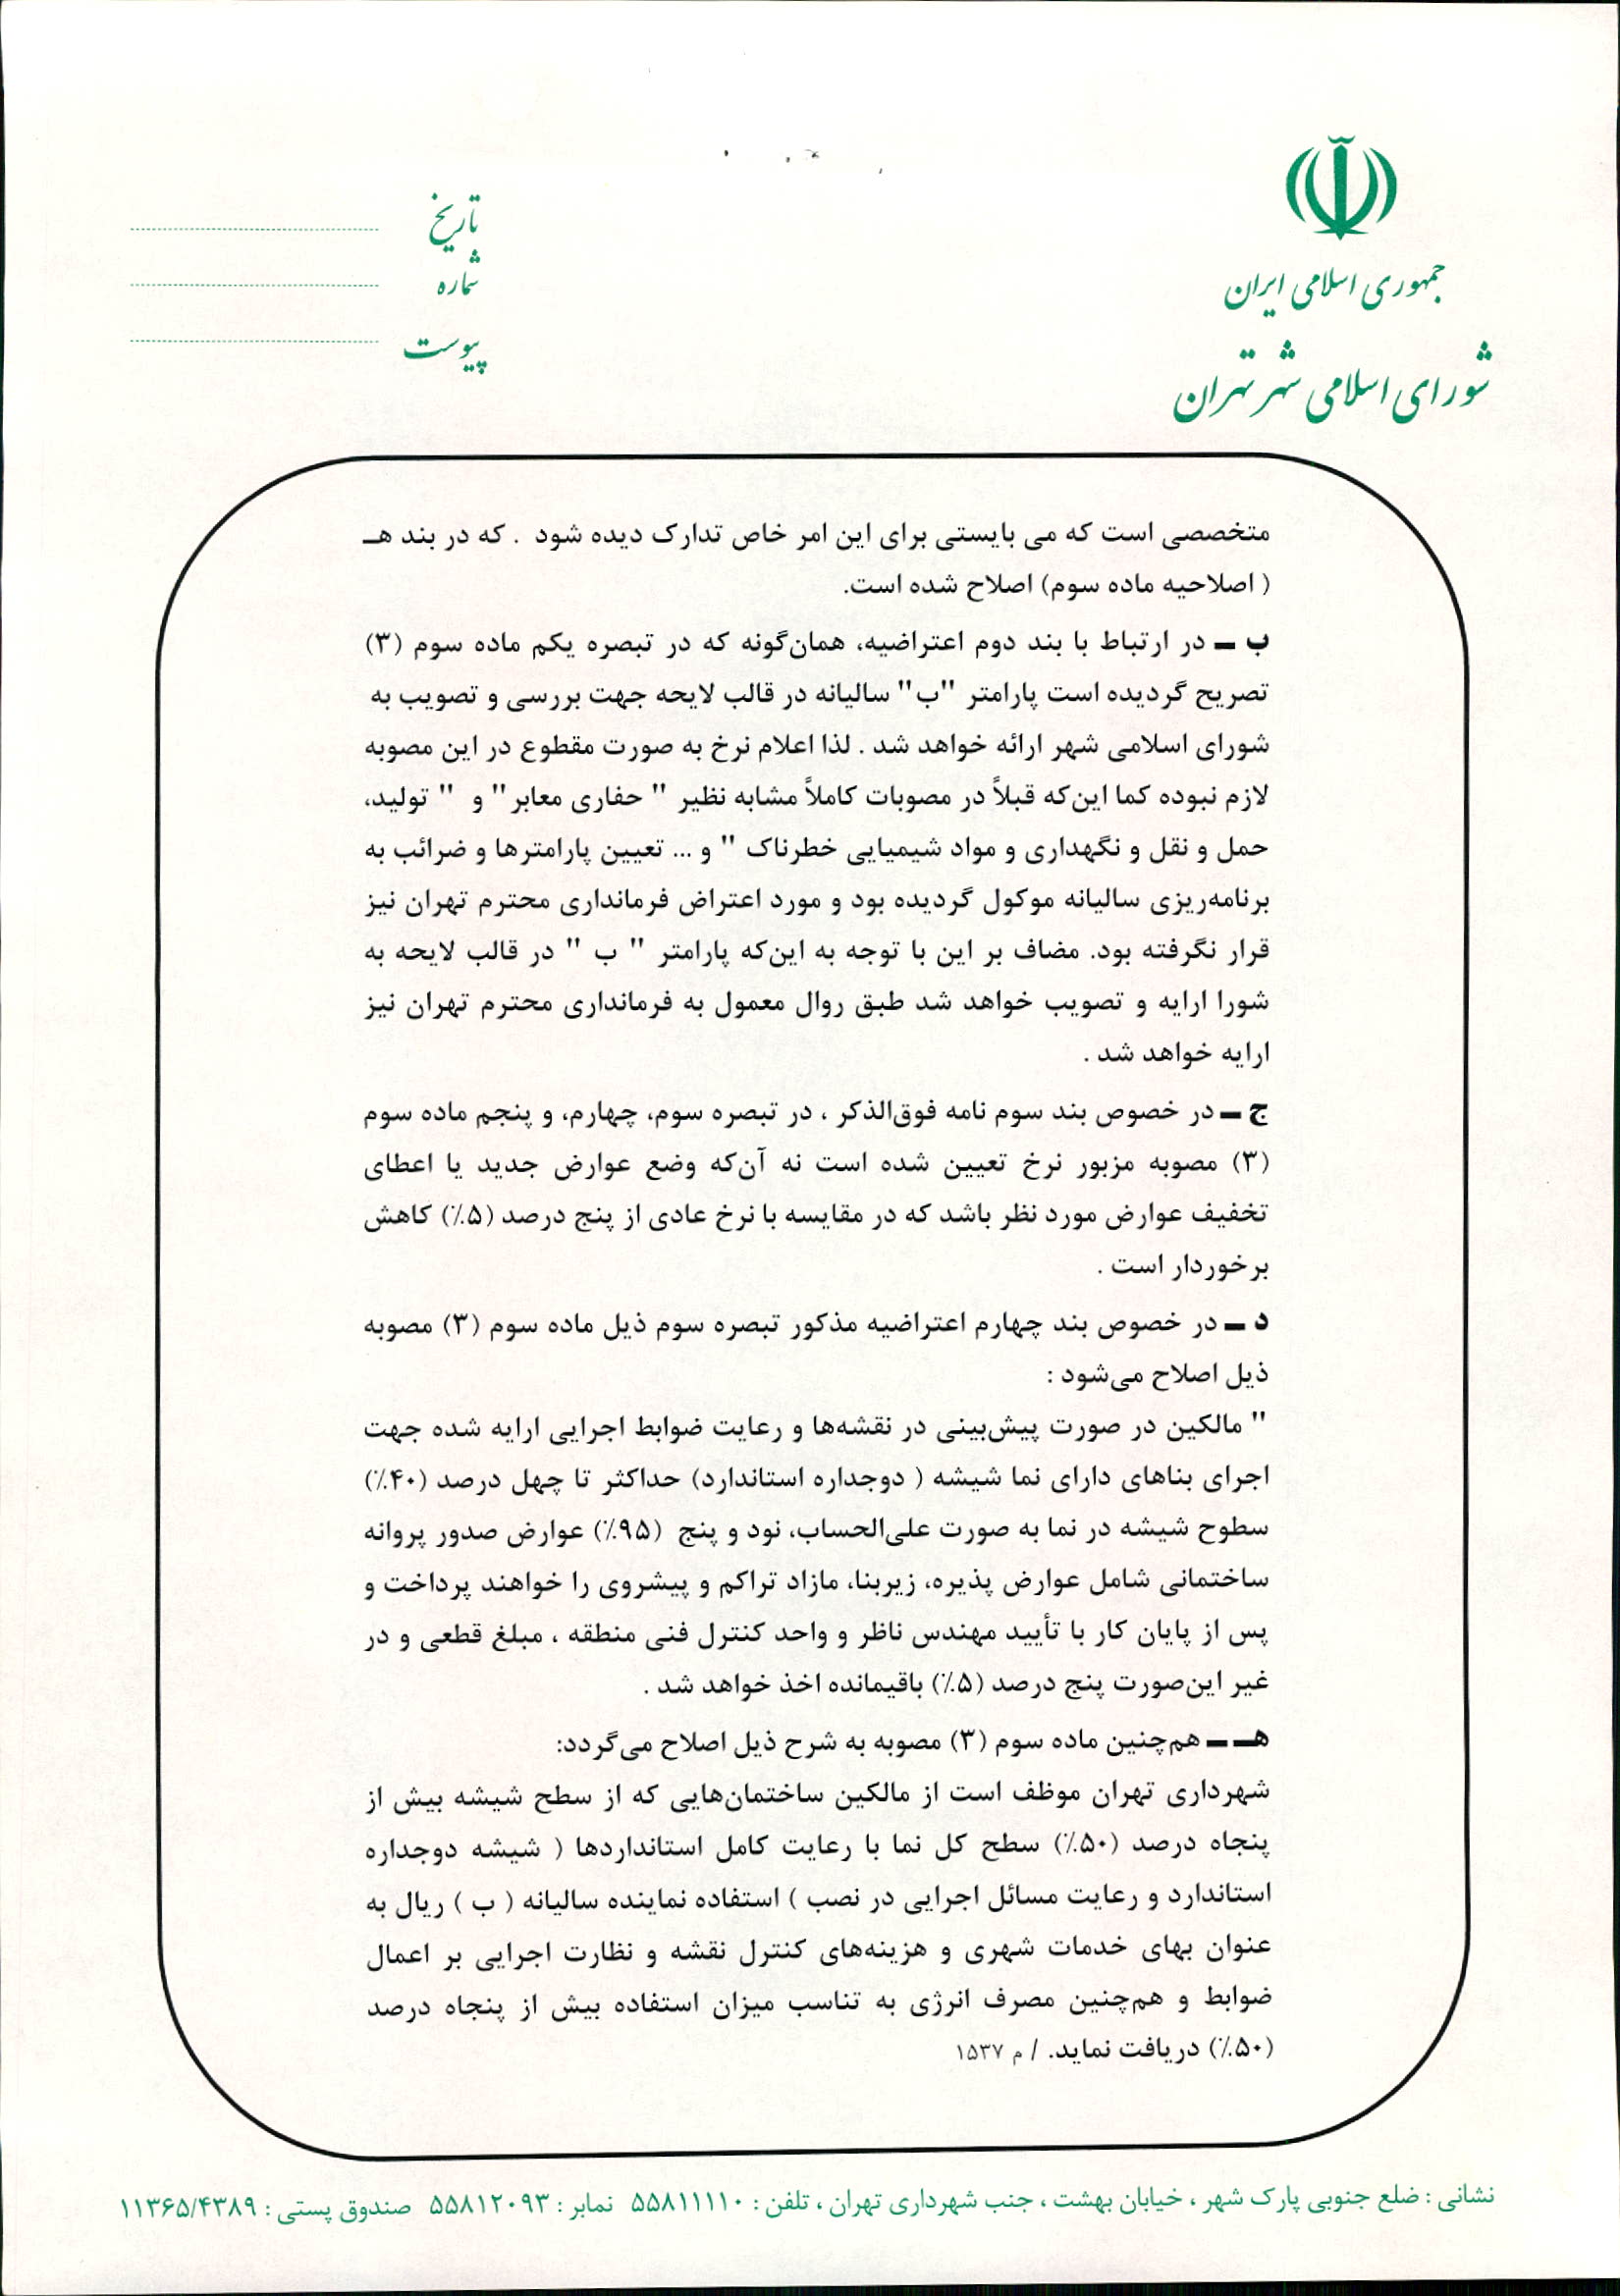 جمهوری اسلامی ایران
شورای اسلامی شهر تهران
تاریخ
شماره
پیوست
متخصصی است که می بایستی برای این امر خاص تدارک دیده شود . که در بند هـ
( اصلاحیه ماده سوم) اصلاح شده است.
ب ـ در ارتباط با بند دوم اعتراضیه، همان‌گونه که در تبصره یکم ماده سوم (۳)
تصریح گردیده است پارامتر "ب" سالیانه در قالب لایحه جهت بررسی و تصویب به
شورای اسلامی شهر ارائه خواهد شد . لذا اعلام نرخ به صورت مقطوع در این مصوبه
لازم نبوده کما این‌که قبلاً در مصوبات کاملاً مشابه نظیر " حفاری معابر" و " تولید،
حمل و نقل و نگهداری و مواد شیمیایی خطرناک " و ... تعیین پارامترها و ضرائب به
برنامه‌ریزی سالیانه موکول گردیده بود و مورد اعتراض فرمانداری محترم تهران نیز
قرار نگرفته بود. مضاف بر این با توجه به این‌که پارامتر " ب " در قالب لایحه به
شورا ارایه و تصویب خواهد شد طبق روال معمول به فرمانداری محترم تهران نیز
ارایه خواهد شد .
ج ـ در خصوص بند سوم نامه فوق‌الذکر ، در تبصره سوم، چهارم، و پنجم ماده سوم
(۳) مصوبه مزبور نرخ تعیین شده است نه آن‌که وضع عوارض جدید یا اعطای
تخفیف عوارض مورد نظر باشد که در مقایسه با نرخ عادی از پنج درصد (۵٪) کاهش
برخوردار است .
د ـ در خصوص بند چهارم اعتراضیه مذکور تبصره سوم ذیل ماده سوم (۳) مصوبه
ذیل اصلاح می‌شود :
" مالکین در صورت پیش‌بینی در نقشه‌ها و رعایت ضوابط اجرایی ارایه شده جهت
اجرای بناهای دارای نما شیشه ( دوجداره استاندارد) حداکثر تا چهل درصد (۴۰٪)
سطوح شیشه در نما به صورت علی‌الحساب، نود و پنج (۹۵٪) عوارض صدور پروانه
ساختمانی شامل عوارض پذیره، زیربنا، مازاد تراکم و پیشروی را خواهند پرداخت و
پس از پایان کار با تأیید مهندس ناظر و واحد کنترل فنی منطقه ، مبلغ قطعی و در
غیر این‌صورت پنج درصد (۵٪) باقیمانده اخذ خواهد شد .
هـ ـ هم‌چنین ماده سوم (۳) مصوبه به شرح ذیل اصلاح می‌گردد:
شهرداری تهران موظف است از مالکین ساختمان‌هایی که از سطح شیشه بیش از
پنجاه درصد (۵۰٪) سطح کل نما با رعایت کامل استانداردها ( شیشه دوجداره
استاندارد و رعایت مسائل اجرایی در نصب ) استفاده نماینده سالیانه ( ب ) ریال به
عنوان بهای خدمات شهری و هزینه‌های کنترل نقشه و نظارت اجرایی بر اعمال
ضوابط و هم‌چنین مصرف انرژی به تناسب میزان استفاده بیش از پنجاه درصد
(۵۰٪) دریافت نماید. / م ۱۵۳۷
نشانی : ضلع جنوبی پارک شهر ، خیابان بهشت ، جنب شهرداری تهران ، تلفن : ۵۵۸۱۱۱۱۰ نمابر : ۵۵۸۱۲۰۹۳ صندوق پستی : ۱۱۳۶۵/۴۳۸۹